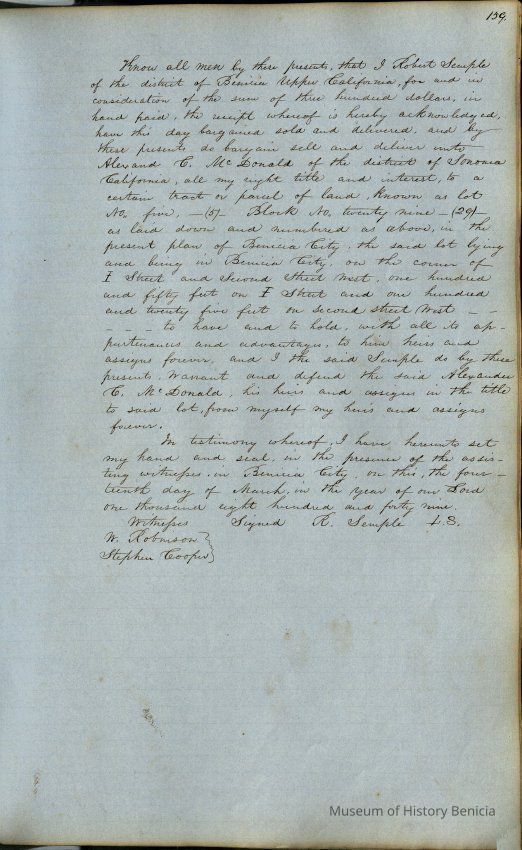 139.
Know all men by these presents, that I Robert Semple
of the district of Benicia Upper California, for and in
consideration of the sum of three hundred dollars, in
hand paid, the receipt whereof is hereby acknowledged,
have this day bargained sold and delivered, and by
these presents do bargain sell and deliver unto
Alexand C. McDonald of the district of Sonoma
California, all my right title and interest, to a
certain tract or parcel of land, known as lot
No. five, —(5)— Block No. twenty nine —(29)—
as laid down and numbered as above, in the
present plan of Benicia City, the said lot lying
and being in Benicia City, on the corner of
I Street and Second Street West, one hundred
and fifty feet on I Street and one hundred
and twenty five feet on second street West – –
– – – – to have and to hold, with all its ap-
purtenances and advantages, to him heirs and
assigns forever, and I the said Semple do by these
presents, warrant and defend the said Alexander
C. McDonald, his heirs and assigns in the title
to said lot, from myself my heirs and assigns
forever.
In testimony whereof, I have hereunto set
my hand and seal, in the presence of the assis-
ting witnesses, in Benicia City, on this, the four-
teenth day of March, in the year of our Lord
one thousand eight hundred and forty nine.
Witnesses Signed R. Semple L.S.
W. Robinson
Stephen Cooper
Museum of History Benicia